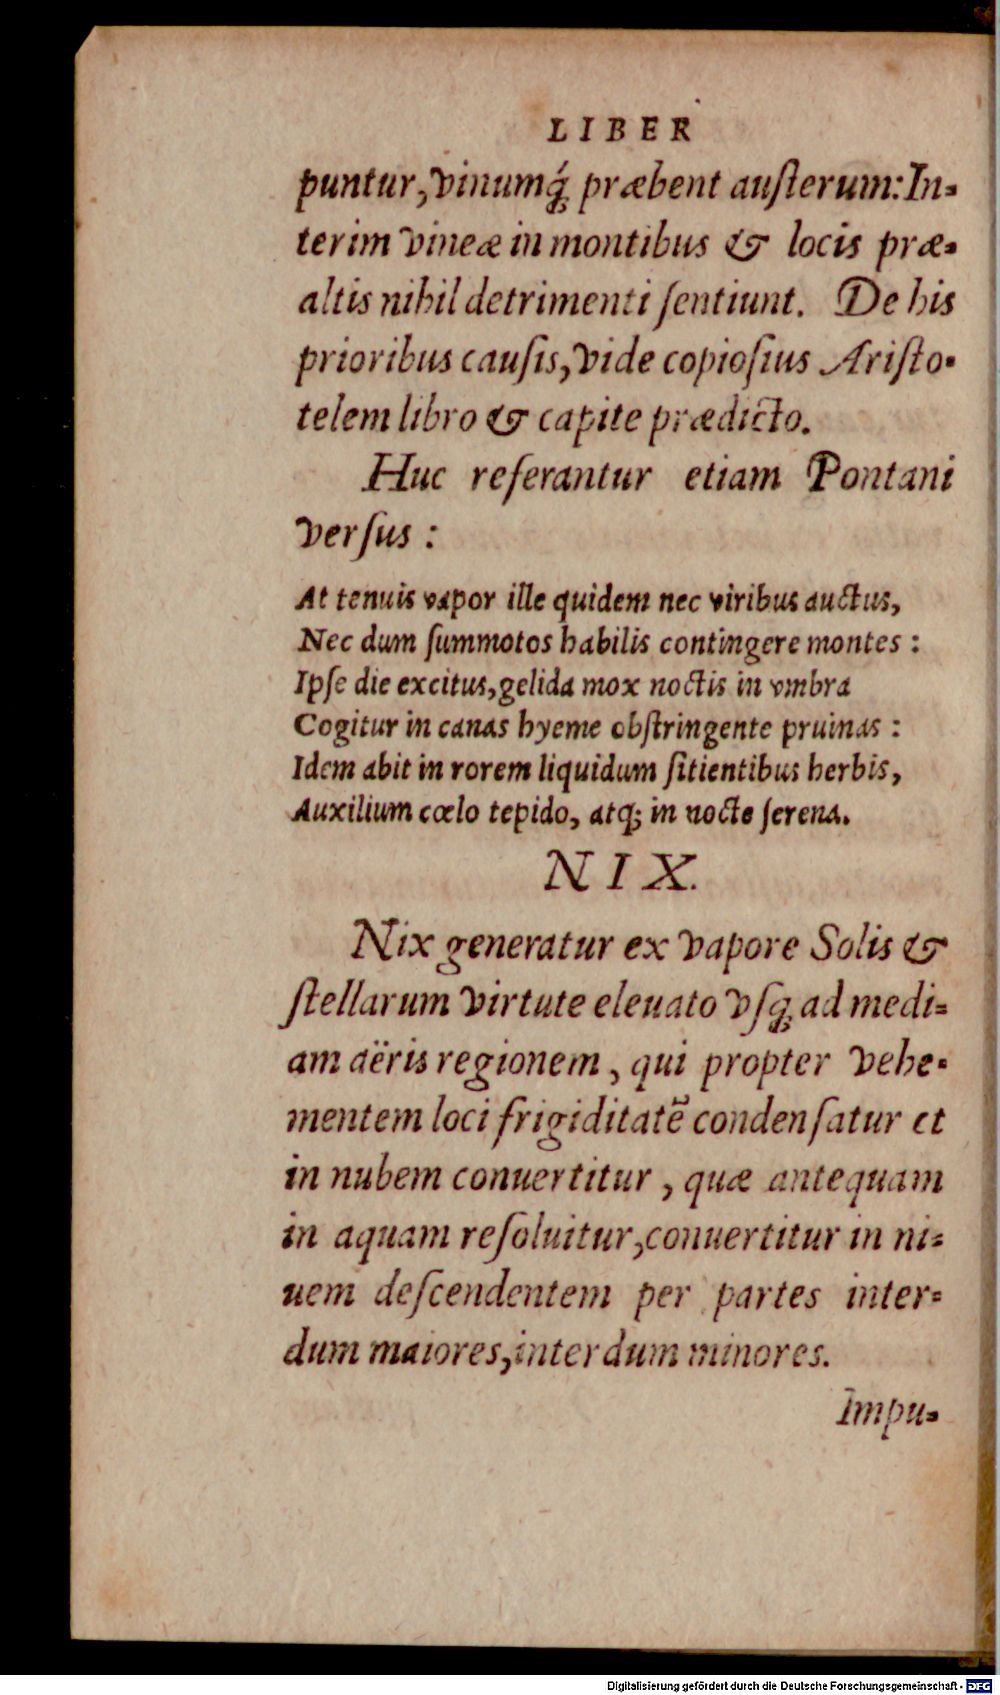 LIBER
puntur, vinumq́; præbent austerum: In-
terim vineæ in montibus & locis præ-
altis nihil detrimenti sentiunt. De his
prioribus causis, vide copiosius Aristo-
telem libro & capite prædicto.
Huc referantur etiam Pontani
versus :
At tenuis vapor ille quidem nec viribus auctus,
Nec dum summotos habilis contingere montes :
Ipse die excitus, gelida mox noctis in vmbra
Cogitur in canas hyeme obstringente pruinas :
Idem abit in rorem liquidum sitientibus herbis,
Auxilium cœlo tepido, atq; in nocte serena.
NIX.
Nix generatur ex vapore Solis &
stellarum virtute eleuato vsq; ad medi-
am aëris regionem, qui propter vehe-
mentem loci frigiditatẽ condensatur et
in nubem conuertitur, quæ antequam
in aquam resoluitur, conuertitur in ni-
uem descendentem per partes inter-
dum maiores, interdum minores.
Impu-
Digitalisierung gefördert durch die Deutsche Forschungsgemeinschaft - DFG